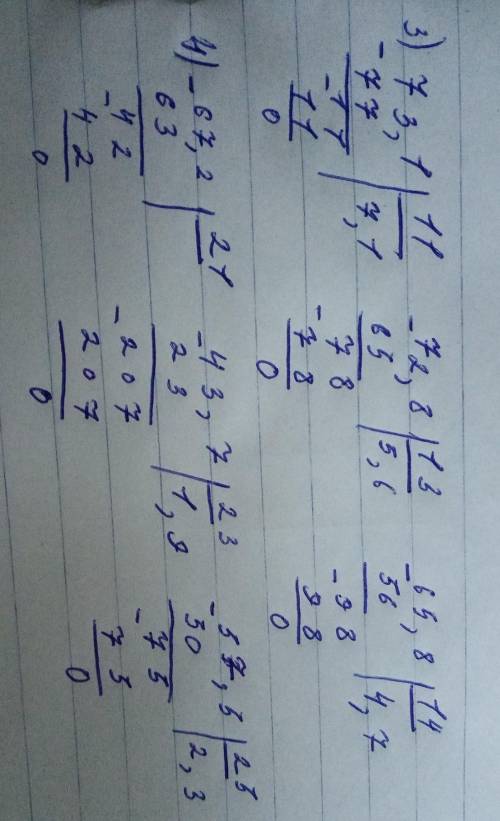 3) -73,1 | 11 -72,8 | 13 -65,8 | 14
77 | 7,1 65 | 5,6 56 | 4,7
-11 -78 -98
11 78 98
0 0 0
4) -67,2 | 21 -43,7 | 23 -57,5 | 25
63 23 | 1,9 50 | 2,3
-42 -207 -75
42 207 75
0 0 0